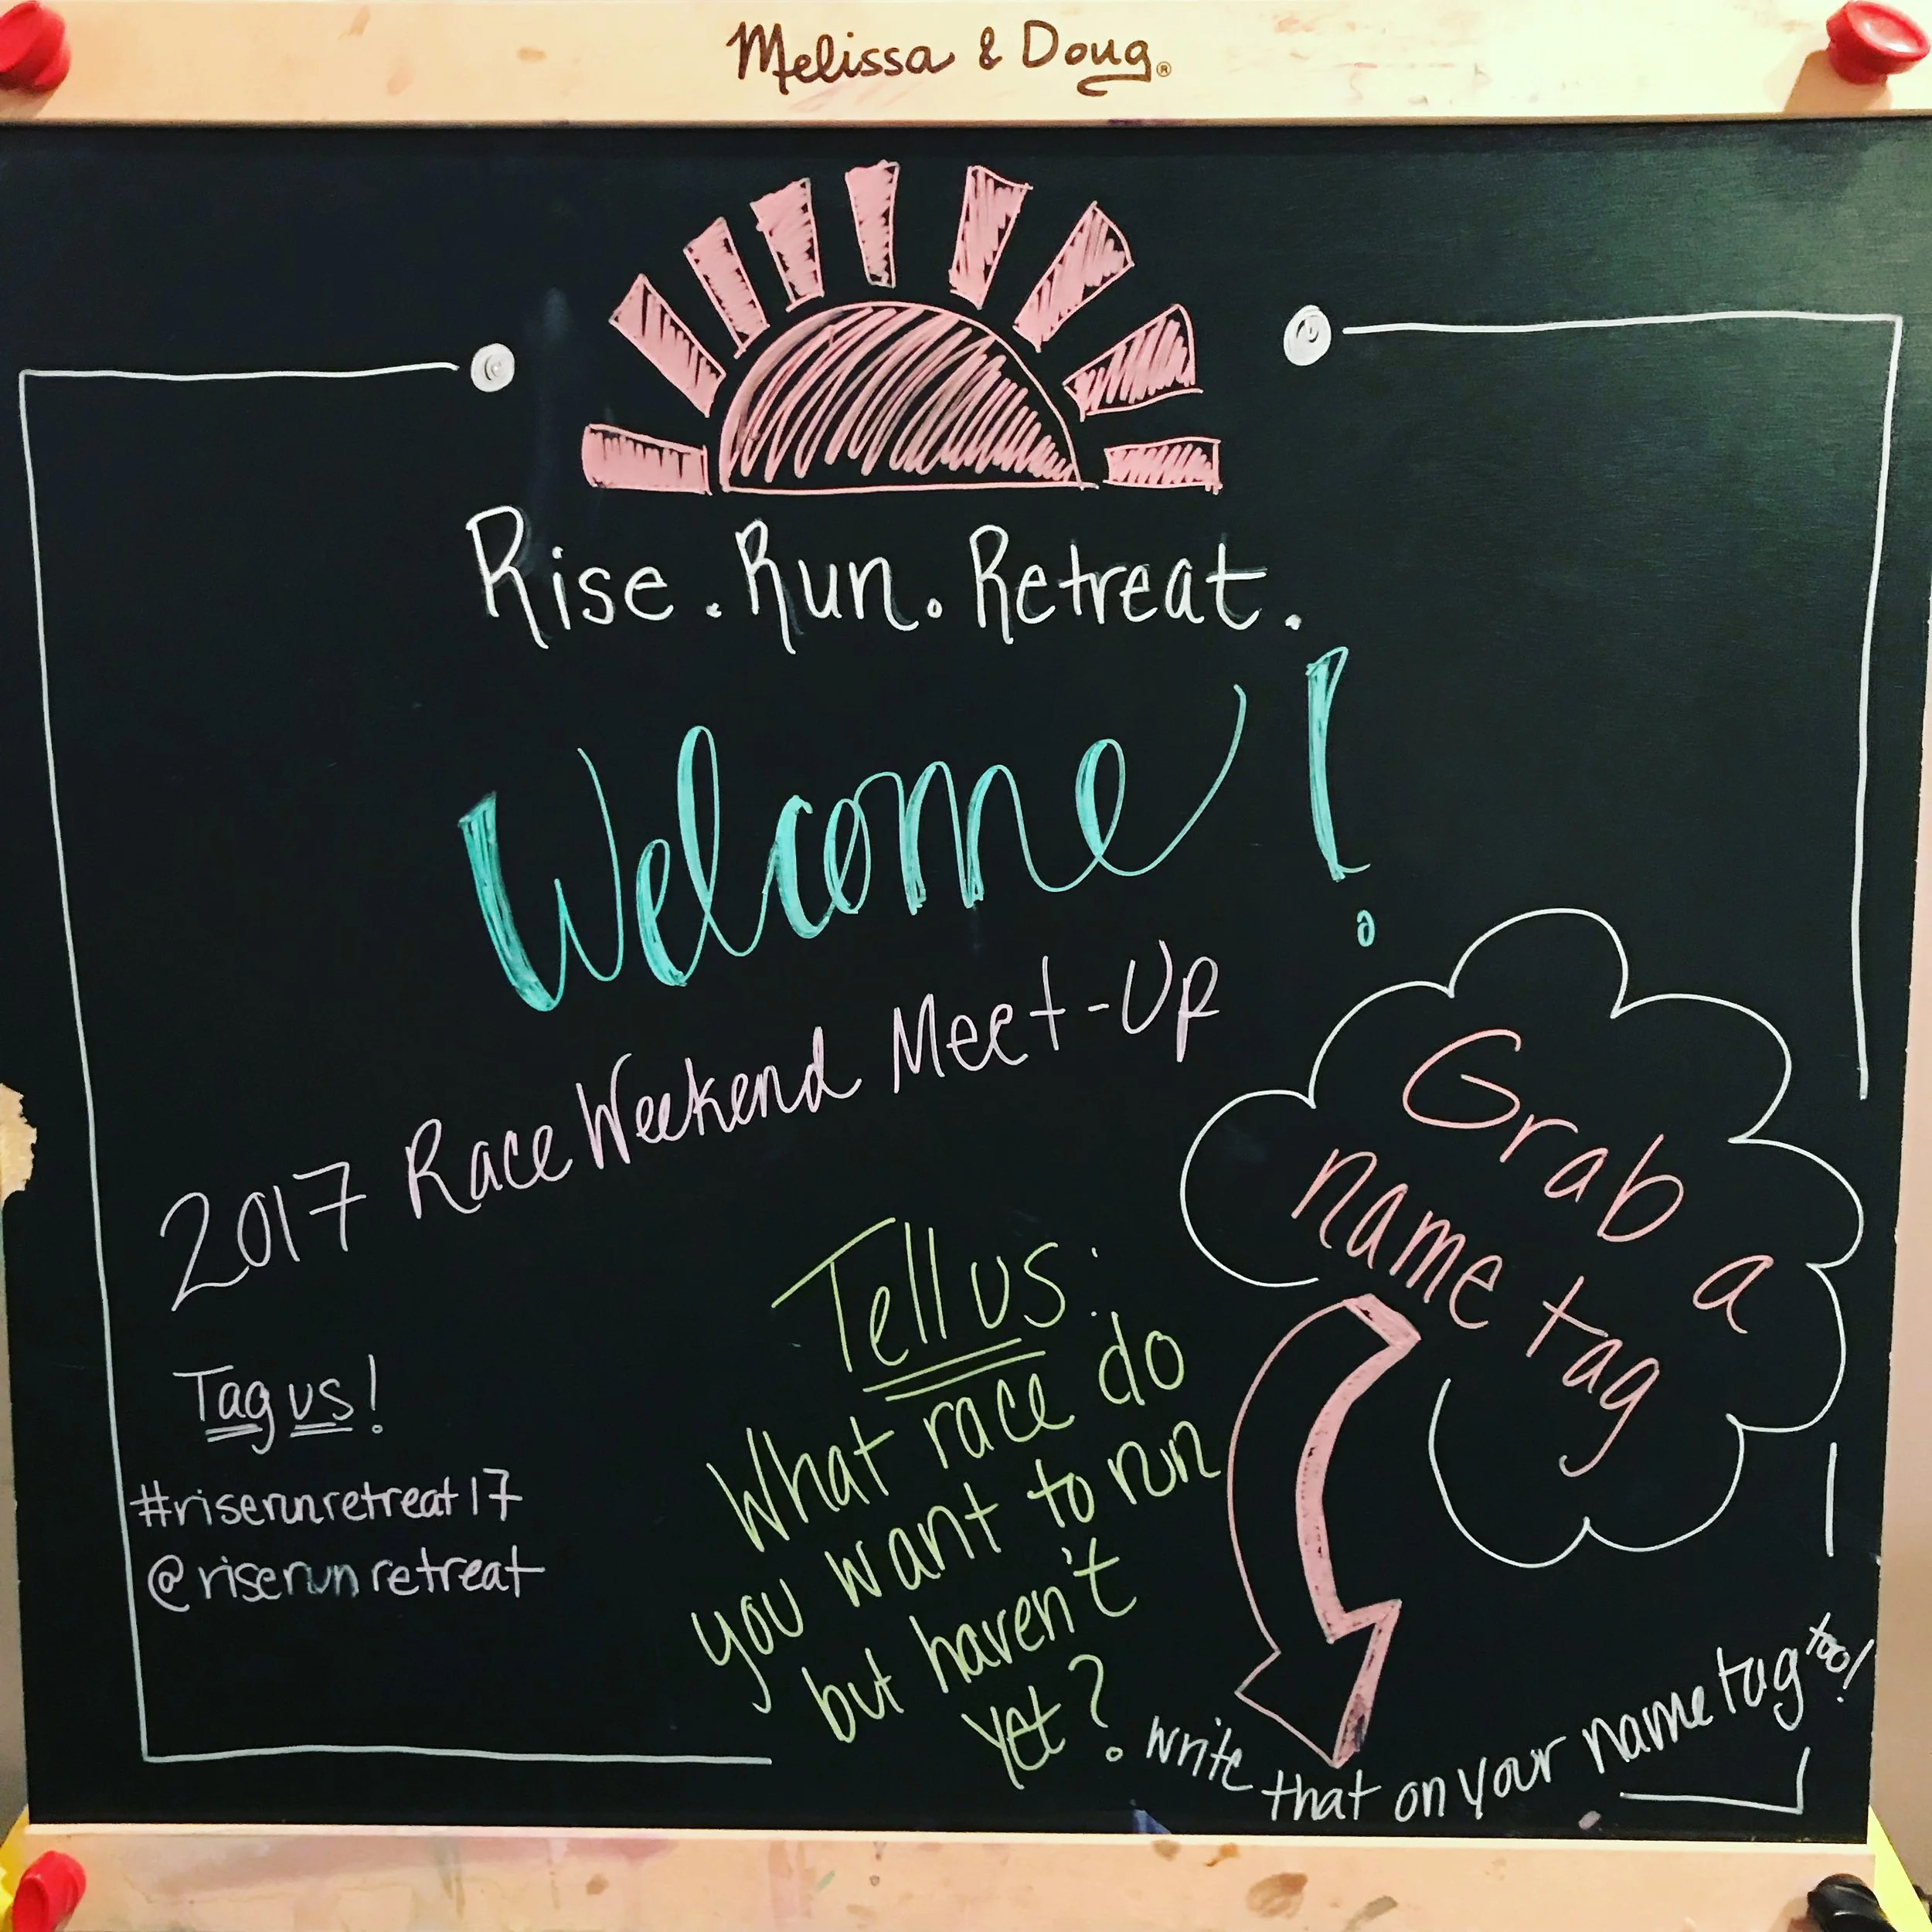 Melissa & Doug®
Rise. Run. Retreat.
Welcome!
2017 Race Weekend Meet-Up
Grab a
name tag
Tell us:
What race do
you want to run
but haven't
yet?
Write that on your name tag too!
Tag us!
#riserunretreat17
@riserunretreat